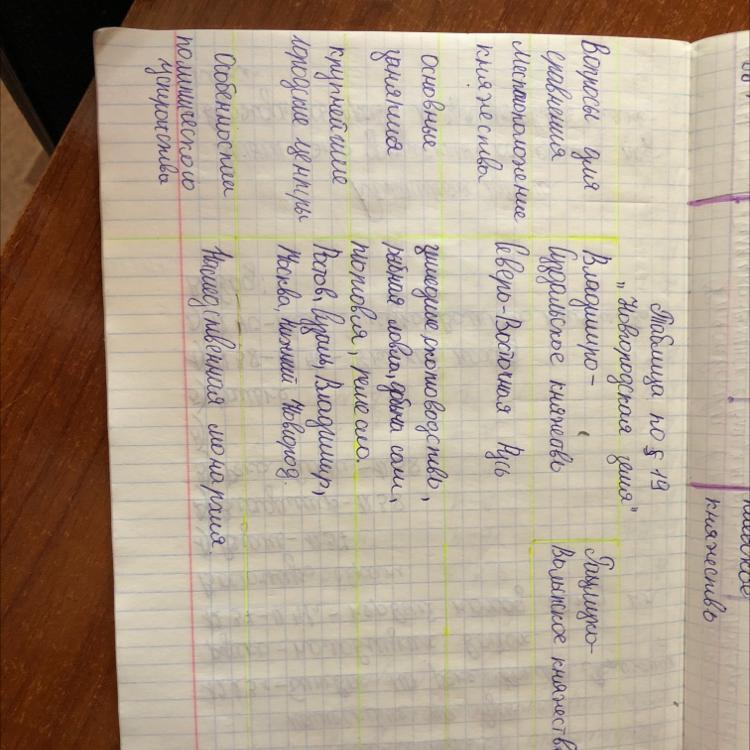 Таблица по § 19
"Новгородская земля"
Вопросы для
сравнения
Владимиро-
Суздальское княжество
Галицко-
Волынское княжество
Местоположение
княжества
Северо-Восточная Русь
Основные
занятия
земледелие, скотоводство,
рыбная ловля, добыча соли,
торговля, ремесло.
Крупнейшие
городские центры
Ростов, Суздаль, Владимир,
Москва, Нижний Новгород.
Особенности
политического
устройства
Наследственная монархия.
княжество